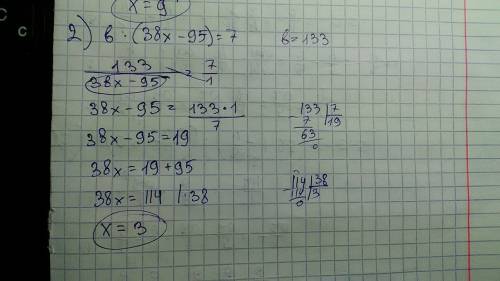 x = 9
2) в · (38x - 95) = 7 в = 133
133 / 38x - 95 = 7 / 1
38x - 95 = 133 · 1 / 7
38x - 95 = 19
38x = 19 + 95
38x = 114 | : 38
x = 3
133 | 7
7 | 19
63
0
114 | 38
114 | 3
0